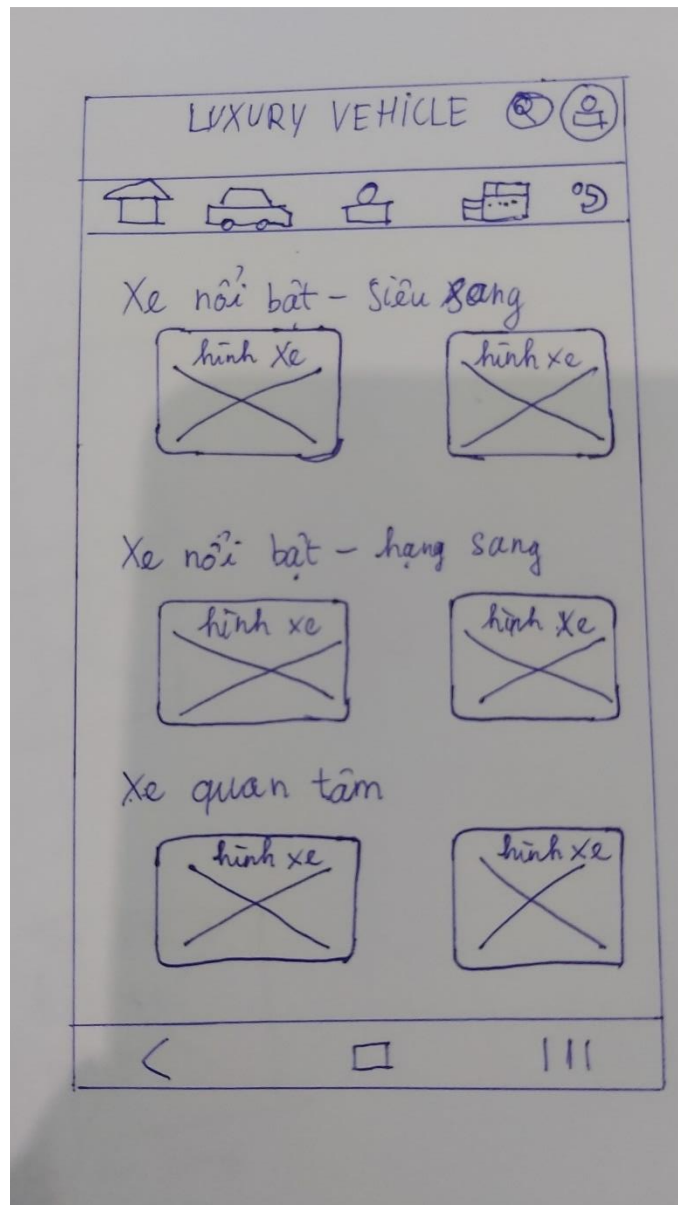 LUXURY VEHICLE
Xe nổi bật - Siêu sang
hình xe hình xe
Xe nổi bật - hạng sang
hình xe hình xe
Xe quan tâm
hình xe hình xe